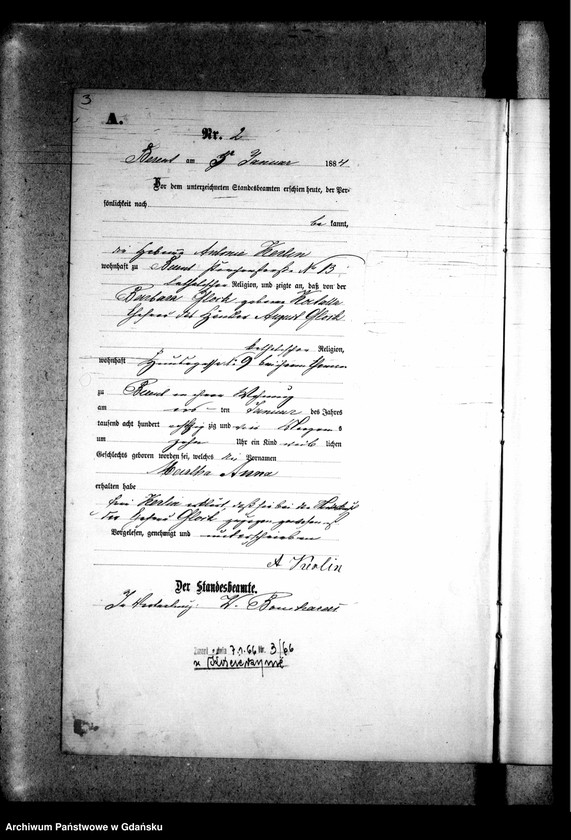 3
A.
Nr. 2
Berent am 3 Januar 1884.
Vor dem unterzeichneten Standesbeamten erschien heute, der Per-
sönlichkeit nach
be kannt,
die Antonie Kerlin
wohnhaft zu Berent No 13,
katholischer Religion, und zeigte an, daß von der
Barbara Glock geborene
Ehefrau des August Glock
katholischer Religion,
wohnhaft 9 bei ihrem
zu Berent in ihrer Wohnung
am ersten Januar des Jahres
tausend acht hundert achtzig zig und vier Morgens
um zehn Uhr ein Kind weib lichen
Geschlechts geboren worden sei, welches die Vornamen
Martha Anna
erhalten habe
Kerlin erklärt, daß sie bei der
der Ehefrau Glock zugegen gewesen ist
Vorgelesen, genehmigt und unterschrieben
A Kerlin
Der Standesbeamte.
In Vertretung: W.
dnia 7.1.66 Nr. 3/66
w Kościerzynie
Archiwum Państwowe w Gdańsku